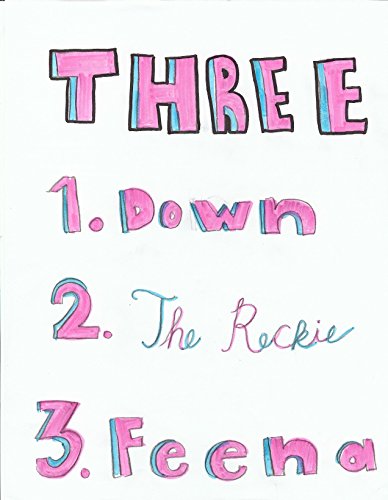 THREE
1. Down
2. The Reckie
3. Feena